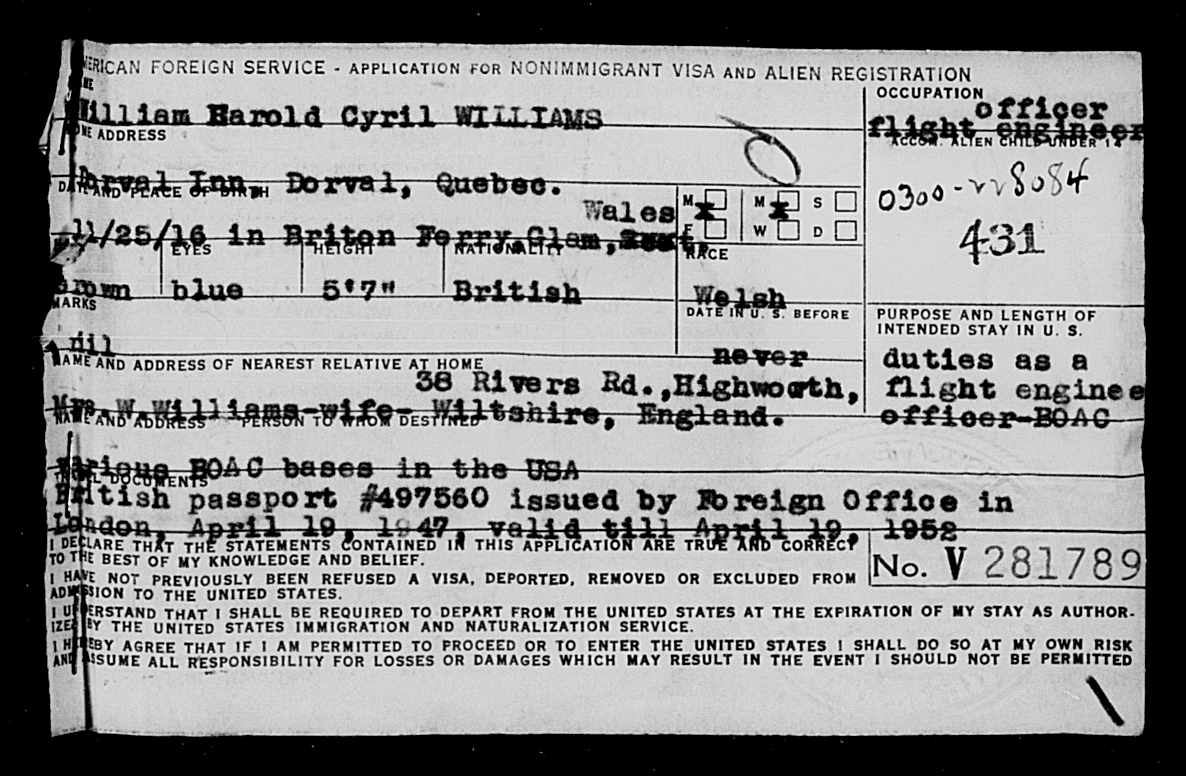 AMERICAN FOREIGN SERVICE - APPLICATION FOR NONIMMIGRANT VISA AND ALIEN REGISTRATION
NAME
OCCUPATION
William Harold Cyril WILLIAMS
officer
flight engineer
HOME ADDRESS
ACCOM. ALIEN CHILD UNDER 14
Dorval Inn, Dorval, Quebec.
0300-228084
431
DATE AND PLACE OF BIRTH
M x M x S
Wales
11/25/16 in Briton Ferry, Glam,
F W D
EYES HEIGHT NATIONALITY
RACE
brown blue 5'7" British
Welsh
MARKS
DATE IN U. S. BEFORE
PURPOSE AND LENGTH OF
INTENDED STAY IN U. S.
nil
never
duties as a
NAME AND ADDRESS OF NEAREST RELATIVE AT HOME
38 Rivers Rd.,Highworth,
flight enginee
Mrs.W.Williams-wife- Wiltshire, England.
officer-BOAC
NAME AND ADDRESS PERSON TO WHOM DESTINED
various BOAC bases in the USA
TRAVEL DOCUMENTS
British passport #497560 issued by Foreign Office in
London, April 19, 1947, valid till April 19, 1952
I DECLARE THAT THE STATEMENTS CONTAINED IN THIS APPLICATION ARE TRUE AND CORRECT
TO THE BEST OF MY KNOWLEDGE AND BELIEF.
No. V 281789
I HAVE NOT PREVIOUSLY BEEN REFUSED A VISA, DEPORTED, REMOVED OR EXCLUDED FROM
ADMISSION TO THE UNITED STATES.
I UNDERSTAND THAT I SHALL BE REQUIRED TO DEPART FROM THE UNITED STATES AT THE EXPIRATION OF MY STAY AS AUTHOR-
IZED BY THE UNITED STATES IMMIGRATION AND NATURALIZATION SERVICE.
I HEREBY AGREE THAT IF I AM PERMITTED TO PROCEED OR TO ENTER THE UNITED STATES I SHALL DO SO AT MY OWN RISK
AND ASSUME ALL RESPONSIBILITY FOR LOSSES OR DAMAGES WHICH MAY RESULT IN THE EVENT I SHOULD NOT BE PERMITTED